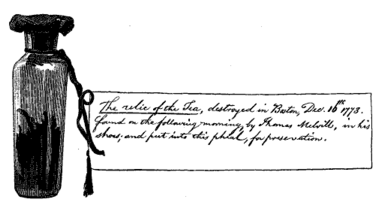 The relic of the Tea, destroyed in Boston, Dec. 16th 1773.
found on the following morning, by Thomas Melvill, in his
shoes, and put into this phial, for preservation.